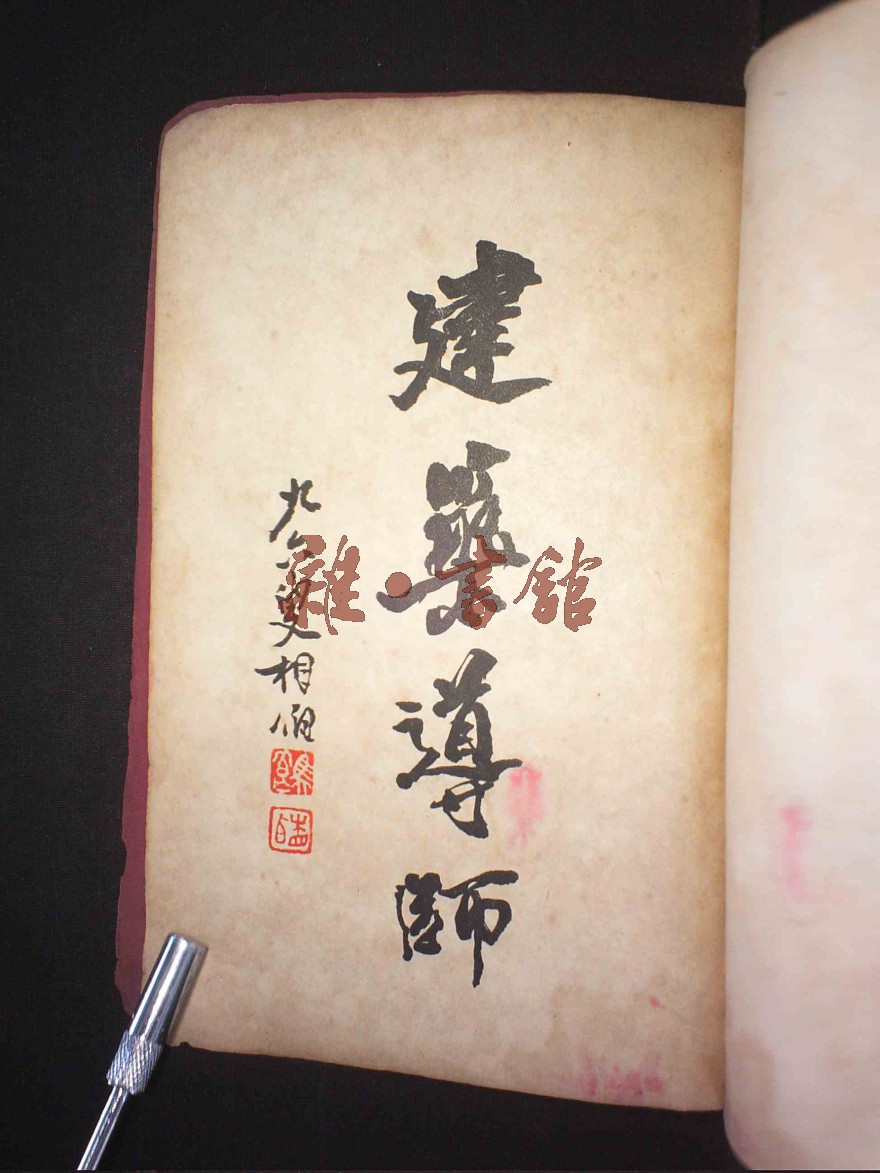 建築導師
九八叟相伯
雜·書館